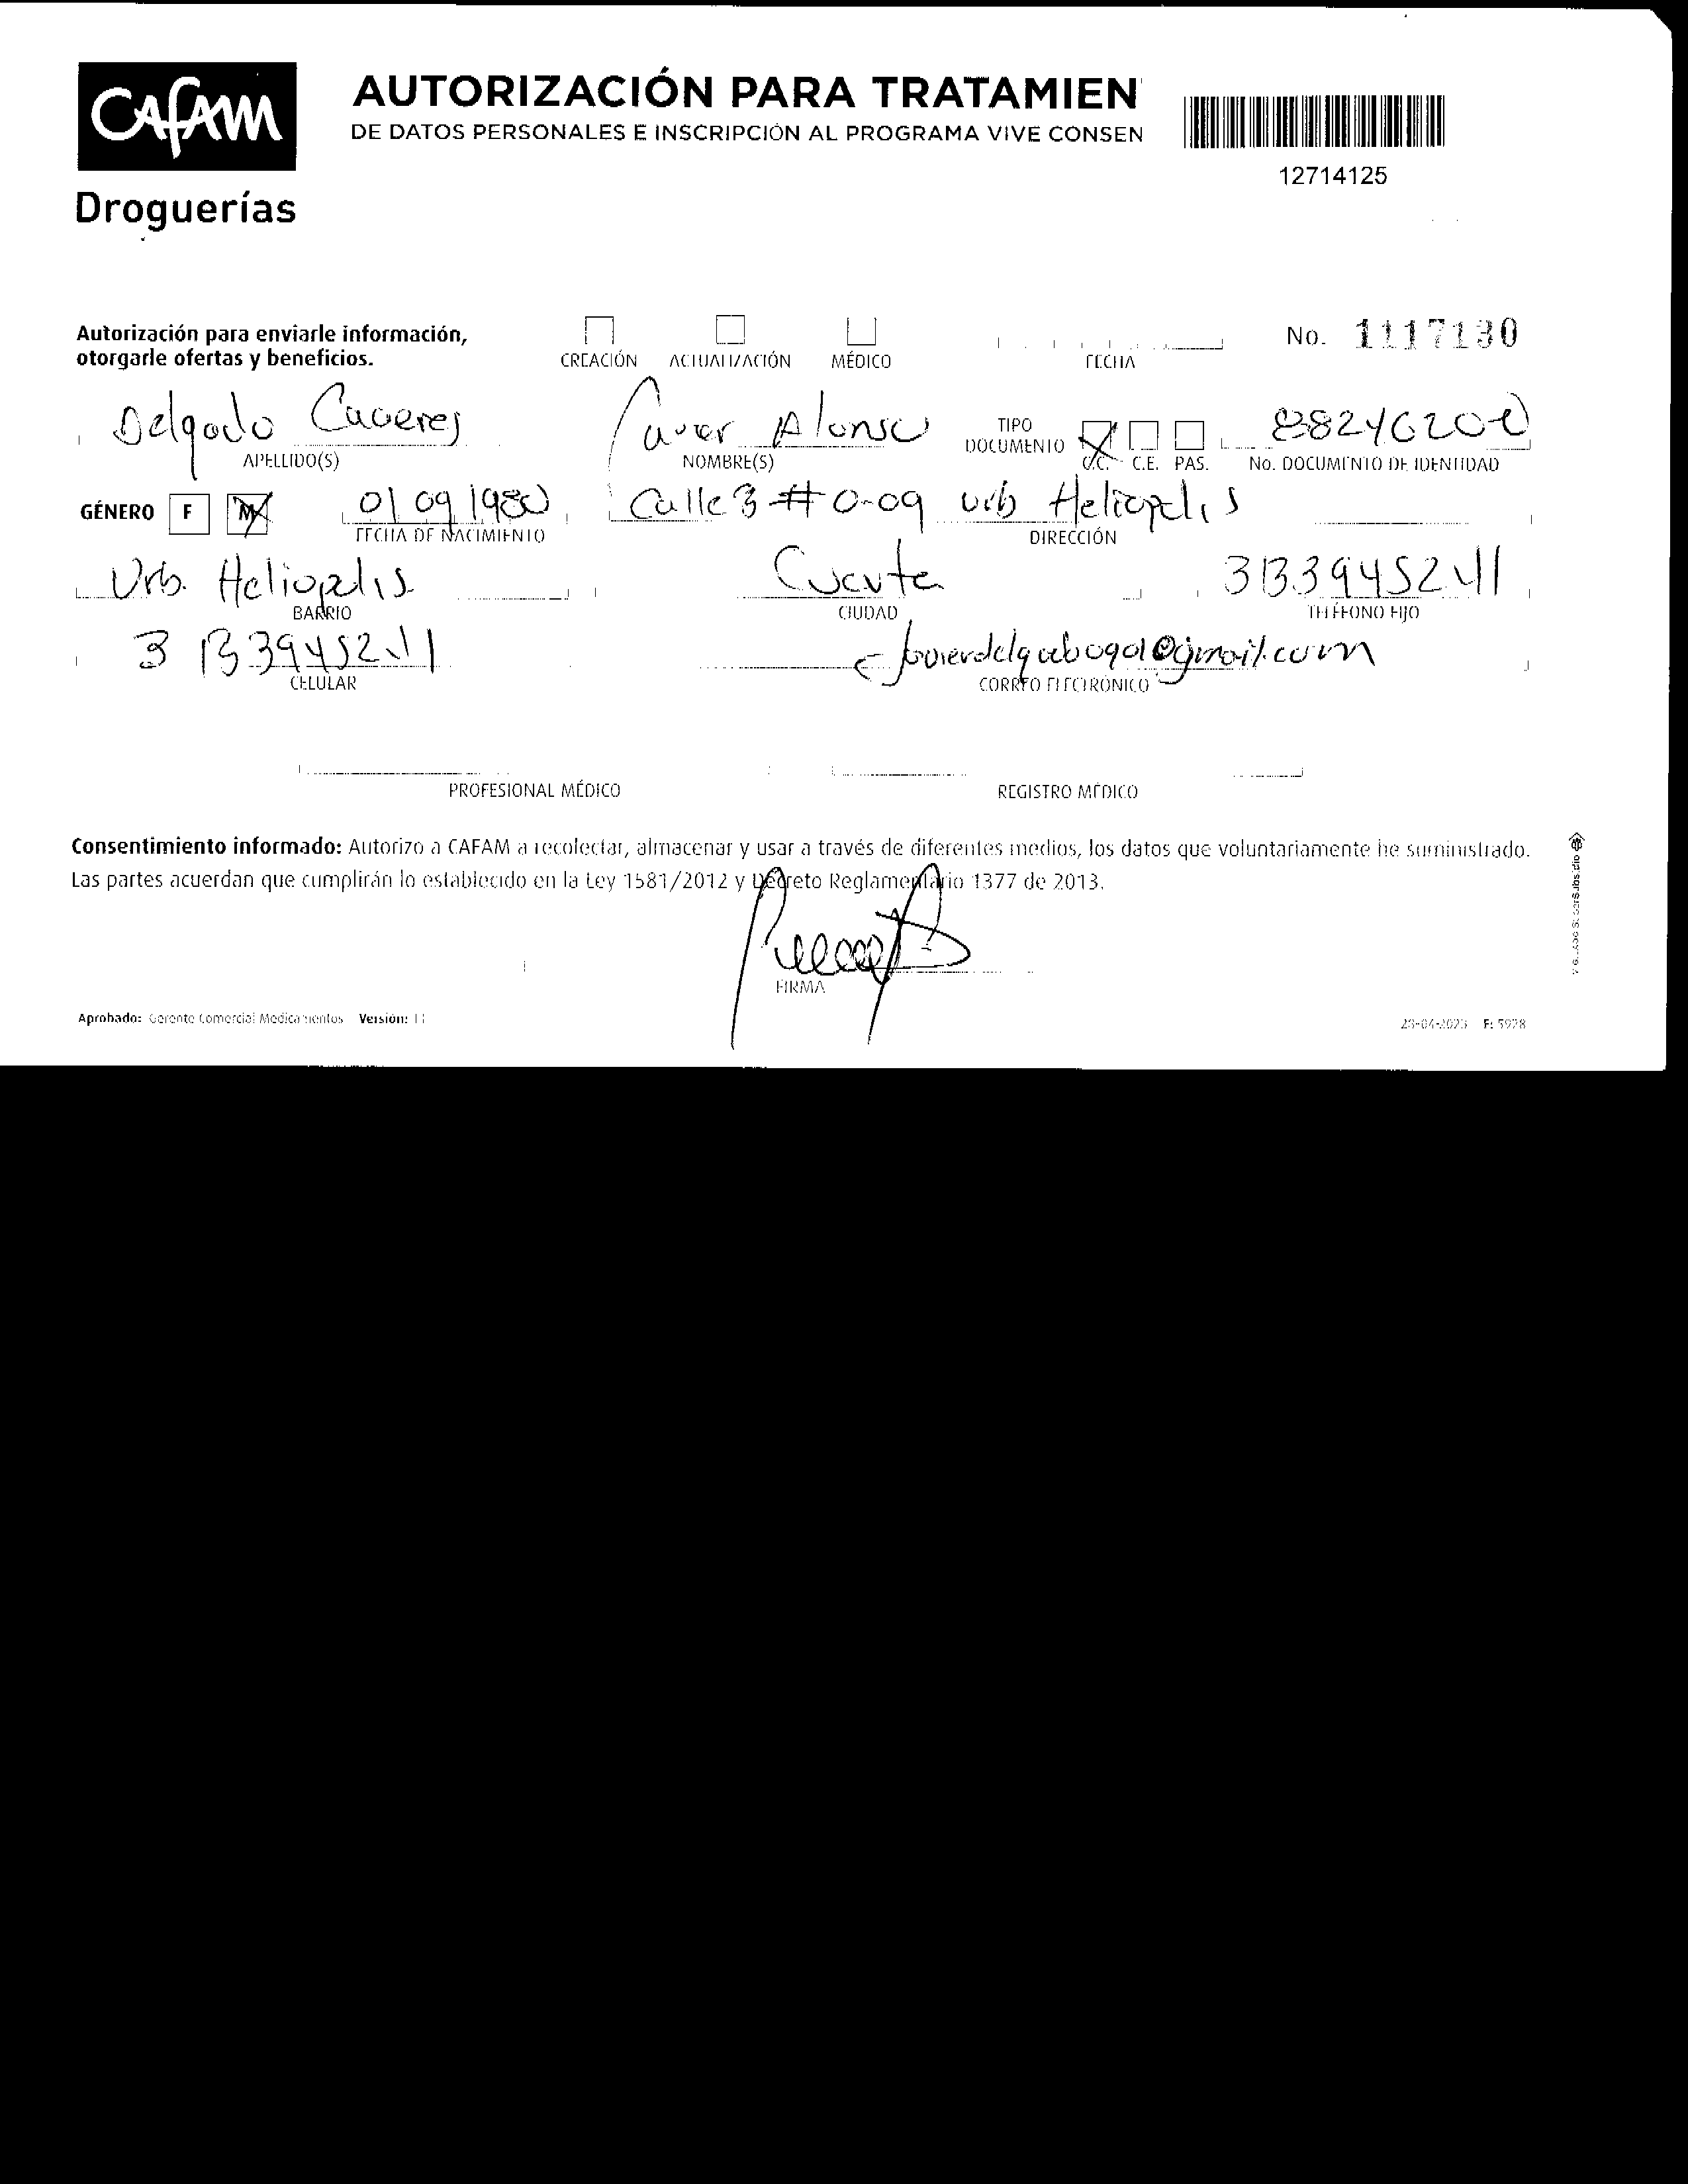 CAFAM
Droguerías
AUTORIZACIÓN PARA TRATAMIEN
DE DATOS PERSONALES E INSCRIPCIÓN AL PROGRAMA VIVE CONSEN
12714125
Autorización para enviarle información,
otorgarle ofertas y beneficios.
CREACIÓN ACTUALIZACIÓN MÉDICO
FECHA
No. 1117130
Delgado Caceres
APELLIDO(S)
Javier Alonso
NOMBRE(S)
TIPO
DOCUMENTO
C.C. C.E. PAS.
No. DOCUMENTO DE IDENTIDAD
GÉNERO F M
01 09 1980
FECHA DE NACIMIENTO
Calle 3 # 0-09 urb Heliopolis
DIRECCIÓN
Urb. Heliopolis
BARRIO
Cucuta
CIUDAD
3133945241
TELÉFONO FIJO
3133945241
CELULAR
CORREO ELECTRÓNICO
PROFESIONAL MÉDICO
REGISTRO MÉDICO
Consentimiento informado: Autorizo a CAFAM a recolectar, almacenar y usar a través de diferentes medios, los datos que voluntariamente he suministrado.
Las partes acuerdan que cumplirán lo establecido en la Ley 1581/2012 y Decreto Reglamentario 1377 de 2013.
FIRMA
Aprobado: Gerente Comercial Medicamentos Versión: 11
F: 5928